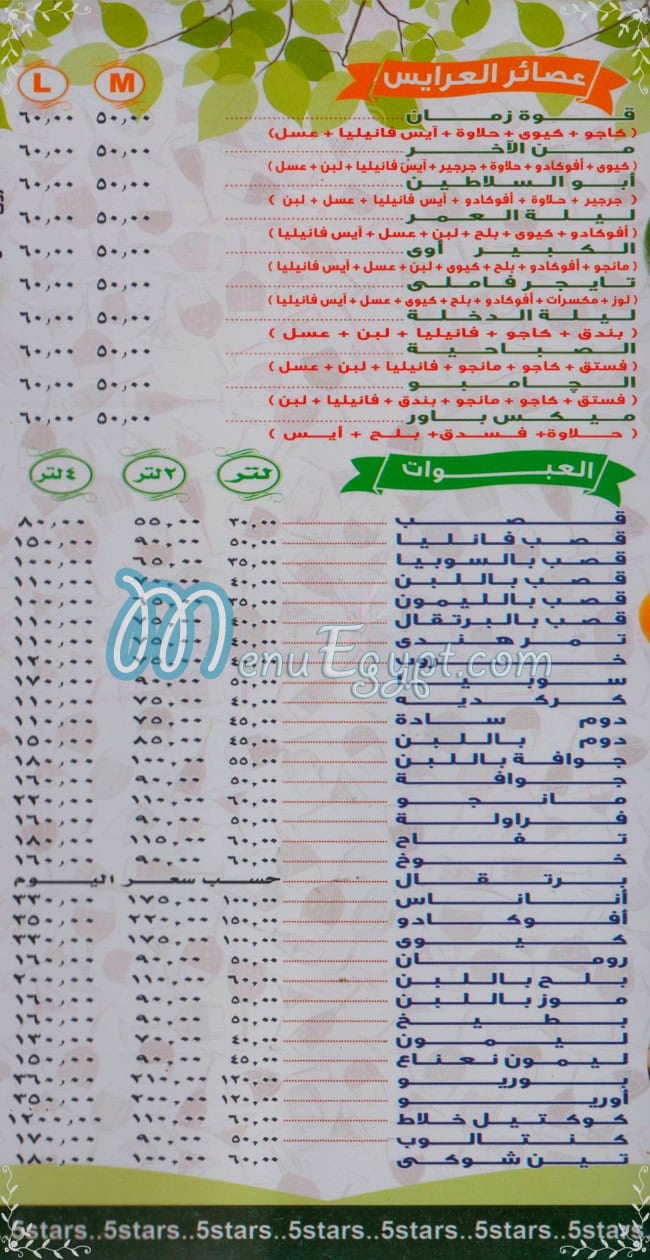 عصائر العرايس M L
قوة زمان ٥٠,٠٠ ٦٠,٠٠
( كاجو + كيوى + حلاوة + آيس فانيليا + عسل )
من الآخر ٥٠,٠٠ ٦٠,٠٠
( كيوى + أفوكادو + حلاوة + جرجير + آيس فانيليا + لبن + عسل )
أبو السلاطين ٥٠,٠٠ ٦٠,٠٠
( جرجير + حلاوة + أفوكادو + آيس فانيليا + عسل + لبن )
ليلة العمر ٥٠,٠٠ ٦٠,٠٠
( أفوكادو + كيوى + بلح + لبن + عسل + آيس فانيليا )
الكبير أوى ٥٠,٠٠ ٦٠,٠٠
( مانجو + أفوكادو + بلح + كيوى + لبن + عسل + آيس فانيليا )
تايجر فاملى ٥٠,٠٠ ٦٠,٠٠
( لوز + مكسرات + أفوكادو + بلح + كيوى + عسل + آيس فانيليا )
ليلة الدخلة ٥٠,٠٠ ٦٠,٠٠
( بندق + كاجو + فانيليا + لبن + عسل )
الصباحية ٥٠,٠٠ ٦٠,٠٠
( فستق + كاجو + مانجو + فانيليا + لبن + عسل )
الچامبو ٥٠,٠٠ ٦٠,٠٠
( فستق + كاجو + مانجو + بندق + فانيليا + لبن )
ميكس باور ٥٠,٠٠ ٦٠,٠٠
( حلاوة+ فسدق+ بلح + أيس )
العبوات لتر ٢لتر ٤لتر
قصب ٣٠,٠٠ ٥٥,٠٠ ٨٠,٠٠
قصب فانليا ٥٠,٠٠ ٩٠,٠٠ ١٥٠,٠٠
قصب بالسوبيا ٣٥,٠٠ ٦٥,٠٠ ١٠٠,٠٠
قصب باللبن ٤٠,٠٠ ١١٠,٠٠
قصب بالليمون ٣٥,٠٠ ١١٠,٠٠
قصب بالبرتقال
تمر هندى
MenuEgypt.com
سوبيا
كركديه ٤٠,٠٠ ٧٥,٠٠ ١١٠,٠٠
دوم سادة ٤٥,٠٠ ٧٥,٠٠ ١١٠,٠٠
دوم باللبن ٤٥,٠٠ ٨٥,٠٠ ١٥٠,٠٠
جوافة باللبن ٥٥,٠٠ ١٠٠,٠٠ ١٨٠,٠٠
جوافة ٥٠,٠٠ ٩٠,٠٠ ١٦٠,٠٠
مانجو ٦٠,٠٠ ١١٠,٠٠ ٢٢٠,٠٠
فراولة ٥٠,٠٠ ٩٠,٠٠ ١٦٠,٠٠
تفاح ٦٠,٠٠ ١١٥,٠٠ ١٨٠,٠٠
خوخ ٦٠,٠٠ ٩٠,٠٠ ١٦٠,٠٠
برتقال حسب سعر اليوم
أناناس ١٠٠,٠٠ ١٧٥,٠٠ ٣٣٠,٠٠
أفوكادو ١٥٠,٠٠ ٢٢٠,٠٠ ٣٥٠,٠٠
كيوى ١٠٠,٠٠ ١٧٥,٠٠ ٣٣٠,٠٠
رومان ٥٠,٠٠ ٩٠,٠٠ ١٦٠,٠٠
بلح باللبن ٦٠,٠٠ ١١٠,٠٠ ٢٠٠,٠٠
موز باللبن ٥٠,٠٠ ٩٠,٠٠ ١٦٠,٠٠
بطيخ ٥٠,٠٠ ٩٠,٠٠ ١٦٠,٠٠
ليمون ٤٠,٠٠ ٧٠,٠٠ ١٣٠,٠٠
ليمون نعناع ٤٥,٠٠ ٩٠,٠٠ ١٥٠,٠٠
بوريو ١٢٠,٠٠ ٢١٠,٠٠ ٣٦٠,٠٠
أوريو ١٢٠,٠٠ ٢٠٠,٠٠ ٣٥٠,٠٠
كوكتيل خلاط ٦٠,٠٠ ١١٠,٠٠ ١٢٠٠,٠٠
كنتالوب ٥٠,٠٠ ٩٠,٠٠ ١٧٠,٠٠
تين شوكى ٦٠,٠٠ ١٠٠,٠٠ ١٨٠,٠٠
5stars..5stars..5stars..5stars..5stars..5stars..5stars